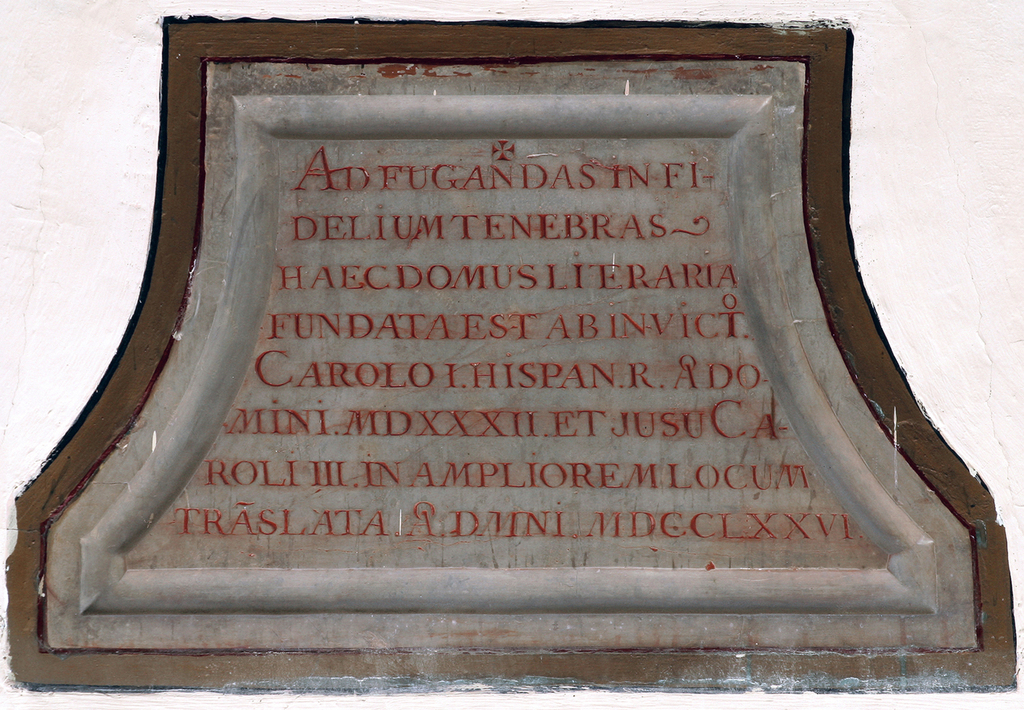 AD FUGANDAS IN FI-
DELIUM TENEBRAS
HAEC DOMUS LITERARIA
FUNDATA EST AB INVICT.º
CAROLO I. HISPAN. R. Aº DO-
MINI. MDXXXII. ET JUSU CA-
ROLI III. IN AMPLIOREM LOCUM
TRÃSLATA. Aº DMNI. MDCCLXXVI.